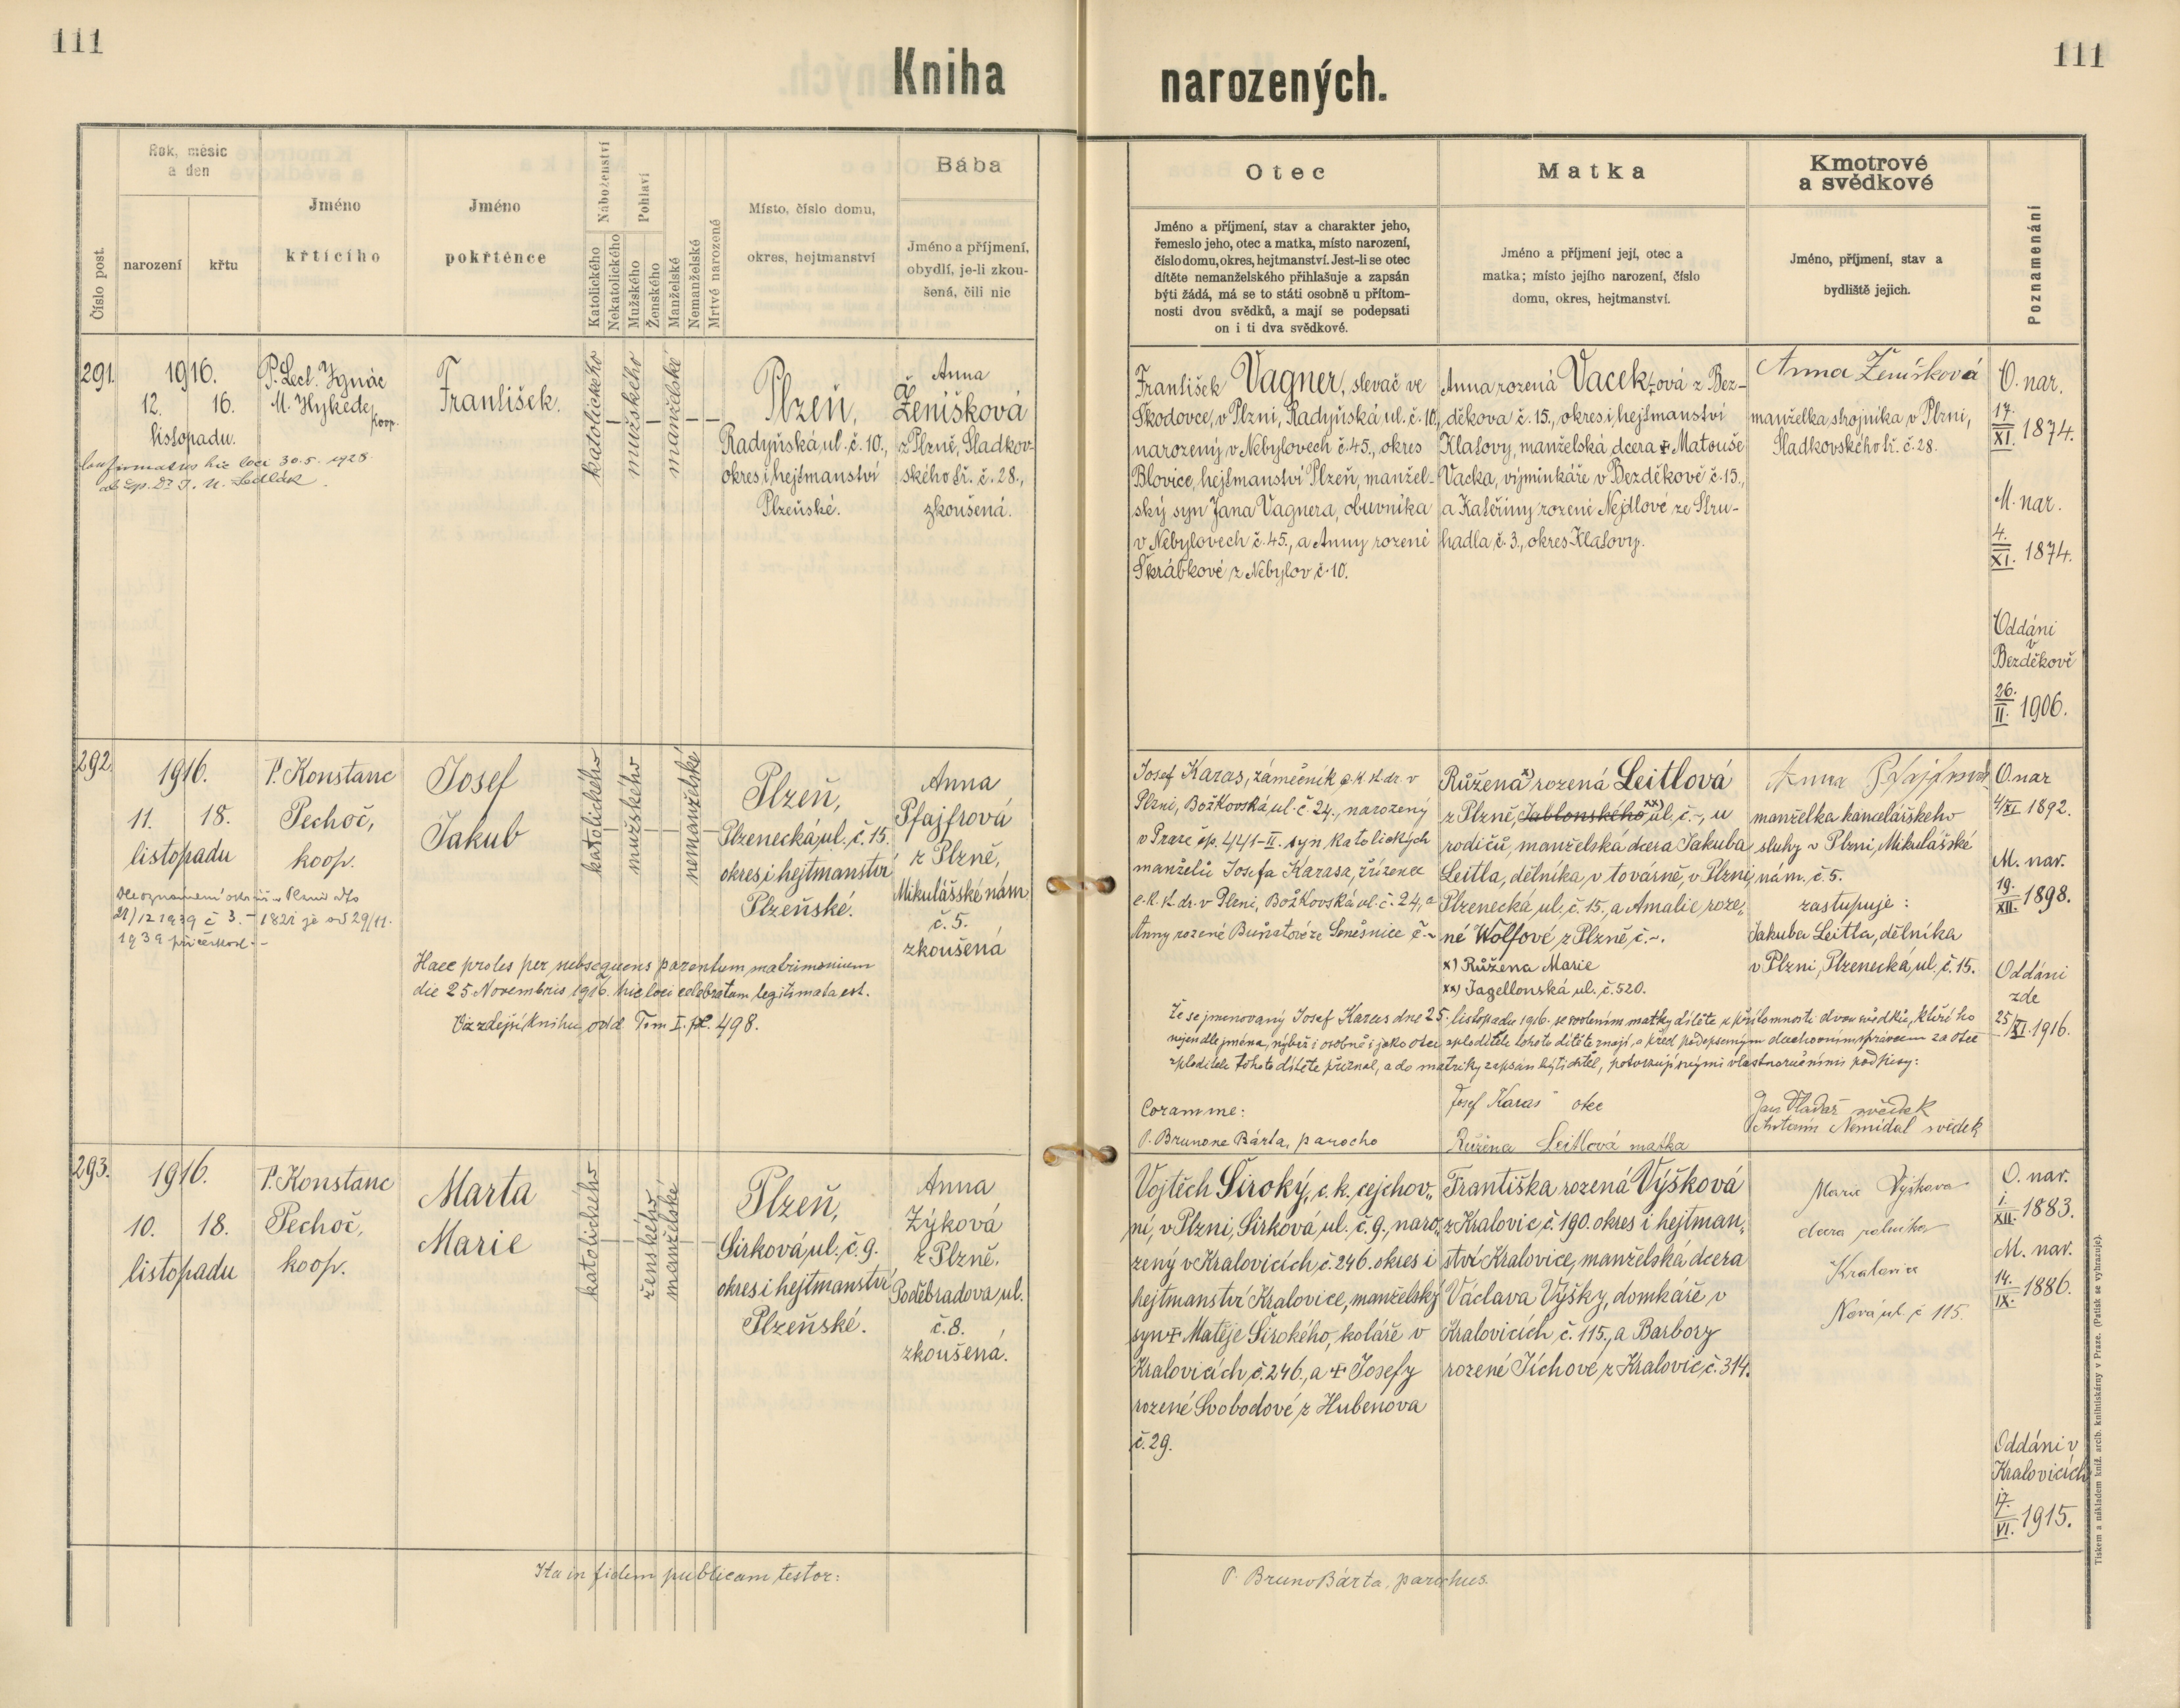 111
Kniha
narozených.
111
Číslo post.
Rok, měsíc
a den
narození
křtu
Jméno
křtícího
Jméno
pokřtěnce
Náboženství
Katolického
Nekatolického
Pohlaví
Mužského
Ženského
Manželské
Nemanželské
Mrtvě narozené
Místo, číslo domu,
okres, hejtmanství
Bába
Jméno a příjmení,
obydlí, je-li zkou-
šená, čili nic
Otec
Jméno a příjmení, stav a charakter jeho,
řemeslo jeho, otec a matka, místo narození,
číslo domu, okres, hejtmanství. Jest-li se otec
dítěte nemanželského přihlašuje a zapsán
býti žádá, má se to státi osobně u přítom-
nosti dvou svědků, a mají se podepsati
on i ti dva svědkové.
Matka
Jméno a příjmení její, otec a
matka; místo jejího narození, číslo
domu, okres, hejtmanství.
Kmotrové
a svědkové
Jméno, příjmení, stav a
bydliště jejich.
Poznamenání
291.
1916.
12. 16.
listopadu.
P. Lect. Ignác
M. Hykede,
koop.
hic loci 30.5. 1928
František.
katolického
mužského
manželské
Plzeň,
Radyňská ul. č. 10.,
okres i hejtmanství
Plzeňské.
Anna
Ženíšková
z Plzně, Sladkov-
ského tř. č. 28.,
zkoušená.
František Vagner, slevač ve
Škodovce, v Plzni, Radyňská ul. č. 10.,
narozený v Nebylovech č. 45., okres
Blovice, hejtmanství Plzeň, manžel-
ský syn Jana Vagnera, obuvníka
v Nebylovech č. 45., a Anny rozené
Škrábkové z Nebylov č. 10.
Anna rozená Vacek-ová z Bez-
děkova č. 15., okres i hejtmanství
Klatovy, manželská dcera ✝ Matouše
Vacka, výminkáře v Bezděkově č. 15.,
a Kateřiny rozené Nejdlové ze Stru-
hadla č. 3., okres Klatovy.
Anna Ženíšková
manželka strojníka v Plzni,
Sladkovského tř. č. 28.
O. nar.
17.
XI. 1874.
M. nar.
4.
XI. 1874.
Oddáni
v
Bezděkově
26.
II. 1906.
292.
1916.
11. 18.
listopadu
P. Konstanc
Pechoč,
koop.
Josef
Jakub
katolického
mužského
nemanželské
Plzeň,
Plzenecká ul. č. 15.
okres i hejtmanství
Plzeňské.
Anna
Pfajfrová
z Plzně,
Mikulášské nám.
č. 5.
zkoušená
Haec proles per subsequens parentum matrimonium
die 25 Novembris 1916. hic loci celebratum legitimata est.
Viz zdejší knihu odd. Tom I. pag. 498.
Josef Karas, zámečník c. k. st. dr. v
Plzni, Božkovská ul. č. 24., narozený
v Praze čp. 441-II. syn katolických
manželů Josefa Karasa, zřízence
c. k. st. dr. v Plzni, Božkovská ul. č. 24, a
Anny rozené
Růžena x) rozená Leitlová
z Plzně, Jablonského xx) ul. č. -, u
rodičů, manželská dcera Jakuba
Leitla, dělníka v továrně, v Plzni,
Plzenecká ul. č. 15., a Amalie roze„
né Wolfové z Plzně, č. -.
x) Růžena Marie
xx) Jagellonská ul. č. 520.
Anna Pfajfrová
manželka kancelářského
sluhy v Plzni, Mikulášské
nám. č. 5.
zastupuje:
Jakuba Leitla, dělníka
v Plzni, Plzenecká ul. č. 15.
O. nar
4/XI. 1892.
M. nar.
19.
XII. 1898.
Oddáni
zde
25/XI. 1916.
Že se jmenovaný Josef Karas dne 25. listopadu 1916. se svolením matky dítěte u přítomnosti dvou svědků, kteří ho
nejen dle jména, nýbrž i osobně i jako otce zploditele tohoto dítěte znají, a před podepsaným duchovním správcem za otce
zploditele tohoto dítěte přiznal, a do matriky zapsán býti chtěl, potvrzují svými vlastnoručními podpisy:
Coram me:
P. Brunone Bárta, parocho
Josef Karas otec
Růžena Leitlová matka
Jan Vladař svědek
Antonín Nemidal svědek
293.
1916.
10. 18.
listopadu
P. Konstanc
Pechoč,
koop.
Marta
Marie
katolického
ženského
manželské
Plzeň,
Sirková ul. č. 9.
okres i hejtmanství
Plzeňské.
Anna
Zýková
z Plzně,
Poděbradova ul.
č. 8.
zkoušená.
Vojtěch Široký, c. k. cejchov„
ní, v Plzni, Sirková ul. č. 9., naro„
zený v Kralovicích, č. 246. okres i
hejtmanství Kralovice, manželský
syn ✝ Matěje Širokého, koláře v
Kralovicích č. 246., a ✝ Josefy
rozené Svobodové z Hubenova
č. 29.
Františka rozená Výšková
z Kralovic č. 190. okres i hejtman„
ství Kralovice, manželská dcera
Václava Výšky, domkáře v
Kralovicích č. 115., a Barbory
rozené Tíchové z Kralovic, č. 314.
Marie Výškova
dcera rolníka
Kralovice
Nová ul č 115.
O. nar.
1.
XII. 1883.
M. nav.
14.
IX. 1886.
Oddáni v
Kralovicích
17.
VI. 1915.
Ita in fidem publicam testor:
P. Bruno Bárta, parochus.
Tiskem a nákladem kníž. arcib. knihtiskárny v Praze. (Patisk se vyhrazuje).